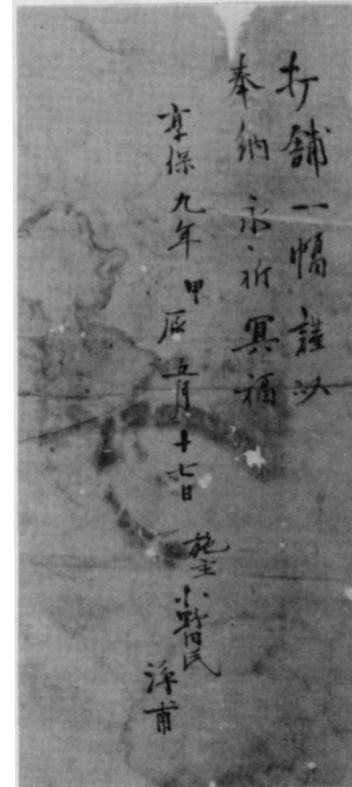 打鋪一幅謹以
奉納永祈冥福
享保九年甲辰五月十七日
施主小野田氏
淳甫